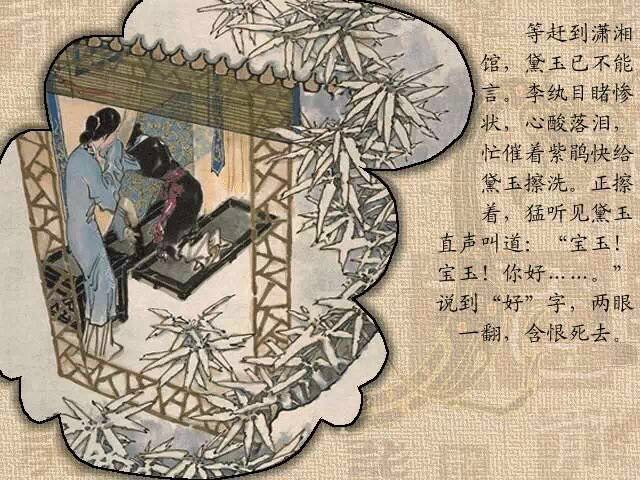 等赶到潇湘
馆，黛玉已不能
言。李纨目睹惨
状，心酸落泪，
忙催着紫鹃快给
黛玉擦洗。正擦
着，猛听见黛玉
直声叫道：“宝玉！
宝玉！你好……。”
说到“好”字，两眼
一翻，含恨死去。